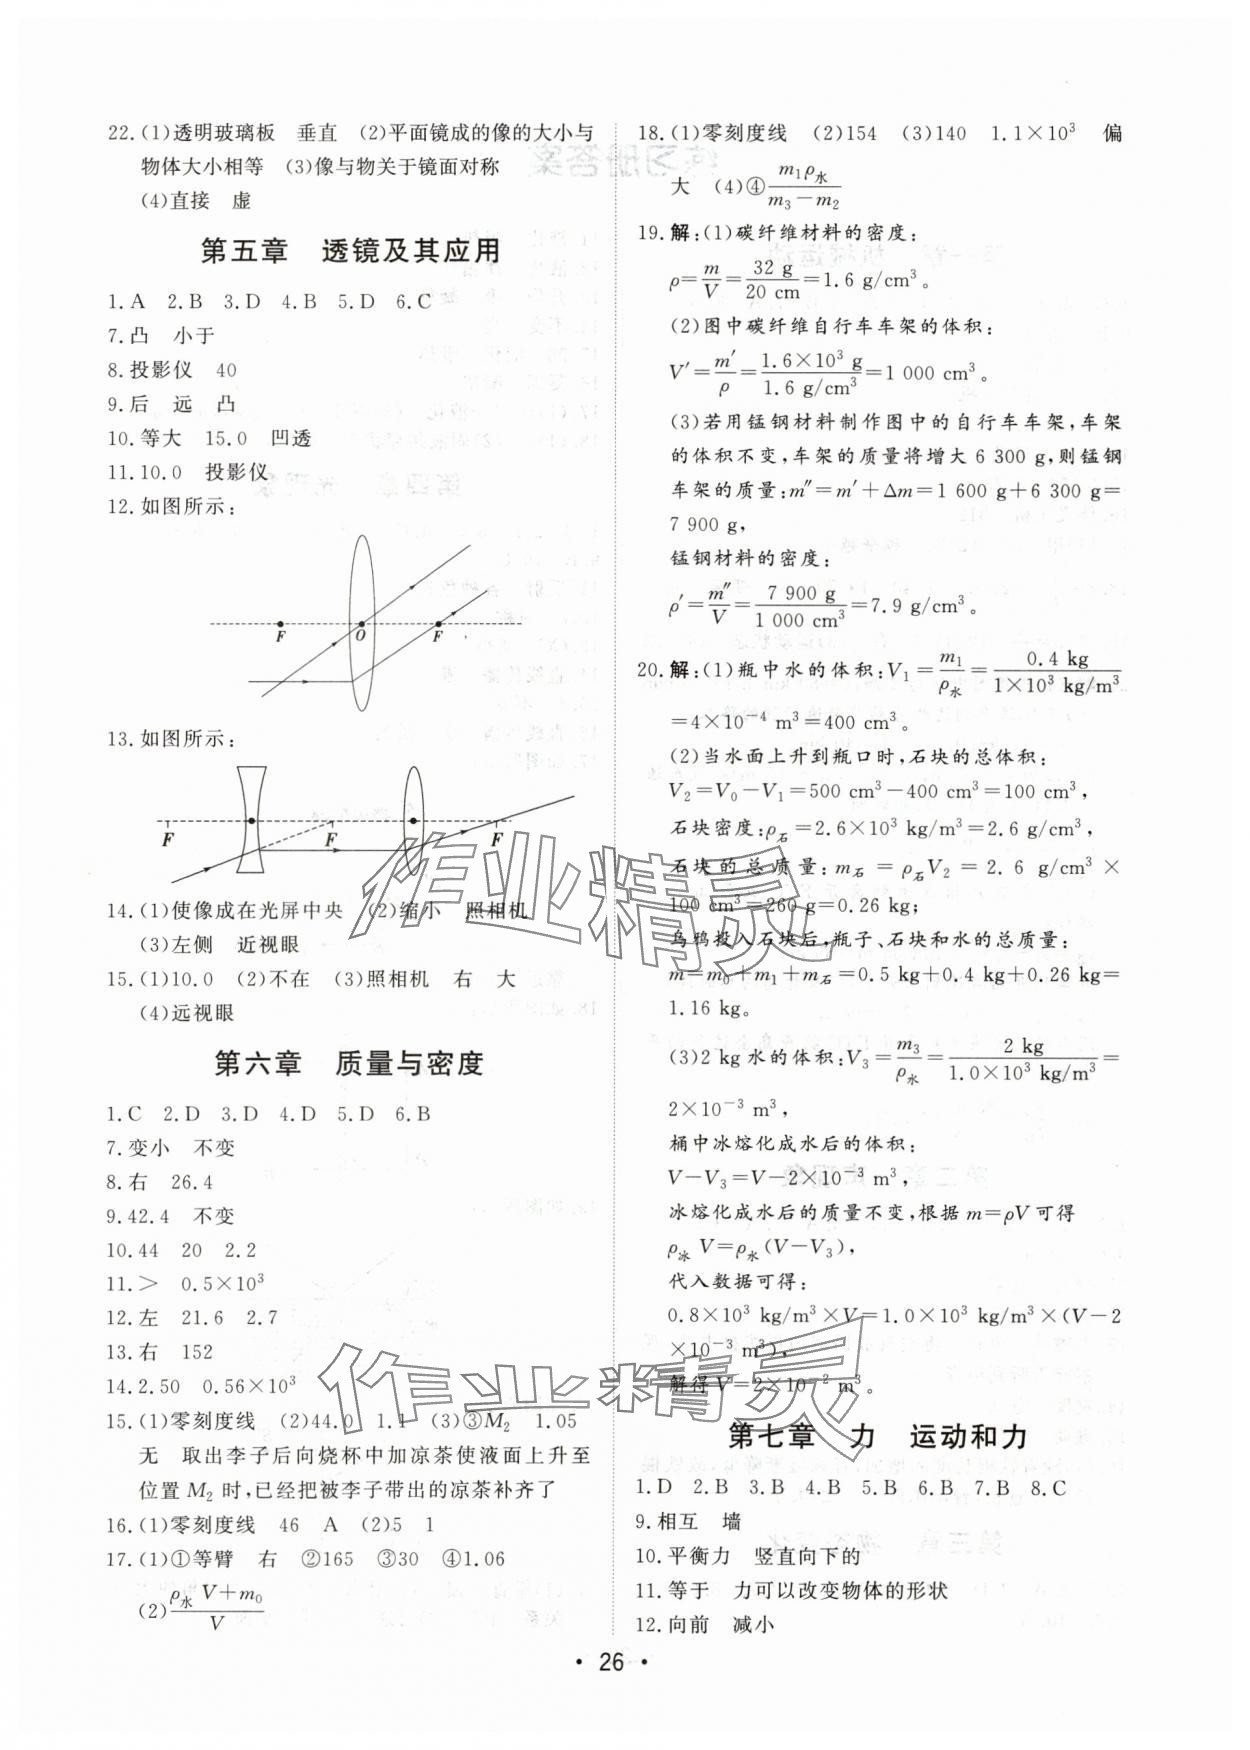 22.(1)透明玻璃板　垂直　(2)平面镜成的像的大小与
物体大小相等　(3)像与物关于镜面对称
(4)直接　虚
第五章　透镜及其应用
1.A　2.B　3.D　4.B　5.D　6.C
7.凸　小于
8.投影仪　40
9.后　远　凸
10.等大　15.0　凹透
11.10.0　投影仪
12.如图所示：
F　O　F
13.如图所示：
F　F　F
14.(1)使像成在光屏中央　(2)缩小　照相机
(3)左侧　近视眼
15.(1)10.0　(2)不在　(3)照相机　右　大
(4)远视眼
第六章　质量与密度
1.C　2.D　3.D　4.D　5.D　6.B
7.变小　不变
8.右　26.4
9.42.4　不变
10.44　20　2.2
11.＞　0.5×10³
12.左　21.6　2.7
13.右　152
14.2.50　0.56×10³
15.(1)零刻度线　(2)44.0　1.1　(3)③M₂　1.05
无　取出李子后向烧杯中加凉茶使液面上升至
位置 M₂ 时,已经把被李子带出的凉茶补齐了
16.(1)零刻度线　46　A　(2)5　1
17.(1)①等臂　右　②165　③30　④1.06
(2)(ρ水V+m₀)/V
18.(1)零刻度线　(2)154　(3)140　1.1×10³　偏
大　(4)④m₁ρ水/(m₃−m₂)
19.解:(1)碳纤维材料的密度：
ρ=m/V=32 g/20 cm=1.6 g/cm³。
(2)图中碳纤维自行车车架的体积：
V′=m′/ρ=1.6×10³ g/1.6 g/cm³=1 000 cm³。
(3)若用锰钢材料制作图中的自行车车架,车架
的体积不变,车架的质量将增大 6 300 g,则锰钢
车架的质量:m″=m′+Δm=1 600 g+6 300 g=
7 900 g,
锰钢材料的密度：
ρ′=m″/V=7 900 g/1 000 cm³=7.9 g/cm³。
20.解:(1)瓶中水的体积:V₁=m₁/ρ水=0.4 kg/1×10³ kg/m³
=4×10⁻⁴ m³=400 cm³。
(2)当水面上升到瓶口时,石块的总体积：
V₂=V₀−V₁=500 cm³−400 cm³=100 cm³,
石块密度:ρ石=2.6×10³ kg/m³=2.6 g/cm³,
石块的总质量:m石=ρ石V₂=2.6 g/cm³×
100 cm³=260 g=0.26 kg;
乌鸦投入石块后,瓶子、石块和水的总质量：
m=m₀+m₁+m石=0.5 kg+0.4 kg+0.26 kg=
1.16 kg。
(3)2 kg 水的体积:V₃=m₃/ρ水=2 kg/1.0×10³ kg/m³=
2×10⁻³ m³,
桶中冰熔化成水后的体积：
V−V₃=V−2×10⁻³ m³,
冰熔化成水后的质量不变,根据 m=ρV 可得
ρ冰V=ρ水(V−V₃),
代入数据可得：
0.8×10³ kg/m³×V=1.0×10³ kg/m³×(V−2
×10⁻³ m³),
解得 V=2×10⁻² m³。
第七章　力　运动和力
1.D　2.B　3.B　4.B　5.B　6.B　7.B　8.C
9.相互　墙
10.平衡力　竖直向下的
11.等于　力可以改变物体的形状
12.向前　减小
• 26 •
作业精灵
作业精灵